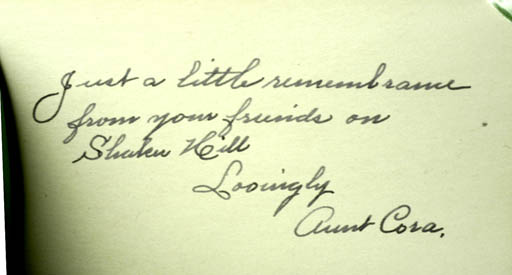 Just a little remembrance
from your friends on
Shaker Hill
Lovingly
Aunt Cora.